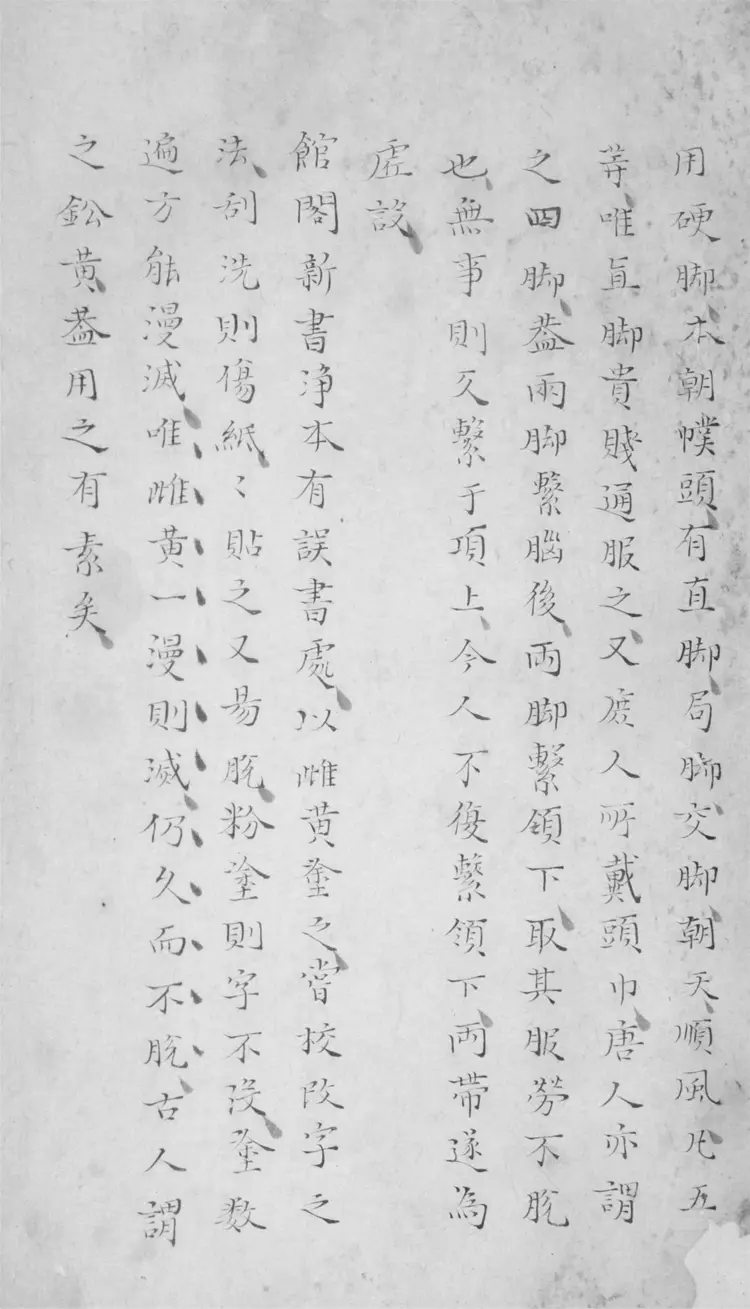 用硬脚本朝幞頭有直脚局脚交脚朝天順風凡五
等唯直脚貴賤通服之又庶人所戴頭巾唐人亦謂
之四脚葢兩脚繫腦後兩脚繫領下取其服勞不脫
也無事則反繫于項上今人不復繫領下兩帶遂為
虛設
館閣新書淨本有誤書處以雌黃塗之嘗校改字之
法刮洗則傷紙〻貼之又易脫粉塗則字不沒塗數
遍方能漫滅唯雌黃一漫則滅仍久而不脫古人謂
之鉛黃葢用之有素矣